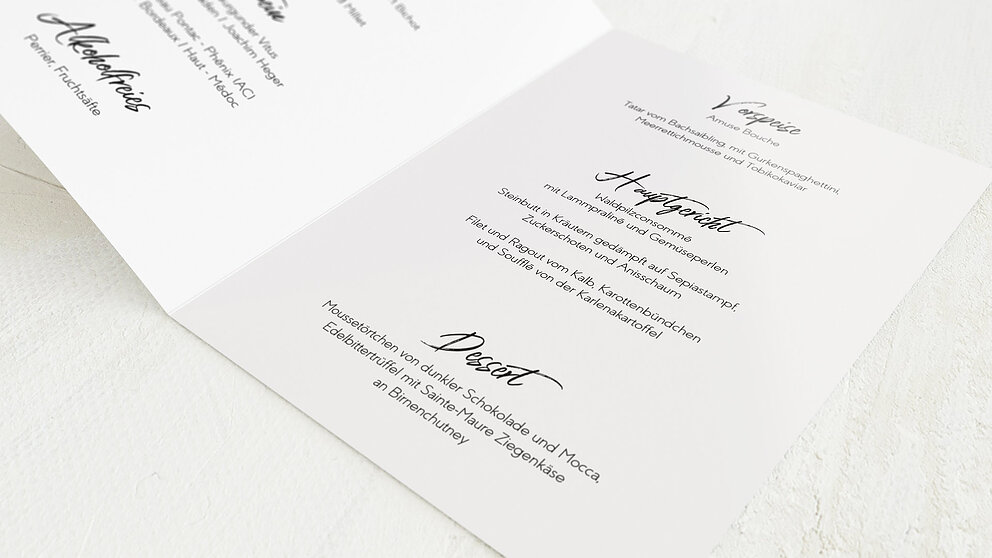 Vitus
Joachim Heger
Pontac - Phénix (AC)
Bordeaux / Haut - Médoc
Alkoholfreies
Perrier, Fruchtsäfte
Vorspeise
Amuse Bouche
Tatar vom Bachsaibling, mit Gurkenspaghettini,
Meerrettichmousse und Tobikokaviar
Hauptgericht
Waldpilzconsommé
mit Lammpraliné und Gemüseperlen
Steinbutt in Kräutern gedämpft auf Sepiastampf,
Zuckerschoten und Anisschaum
Filet und Ragout vom Kalb, Karottenbündchen
und Soufflé von der Karlenakartoffel
Dessert
Moussetörtchen von dunkler Schokolade und Mocca,
Edelbittertrüffel mit Sainte-Maure Ziegenkäse
an Birnenchutney